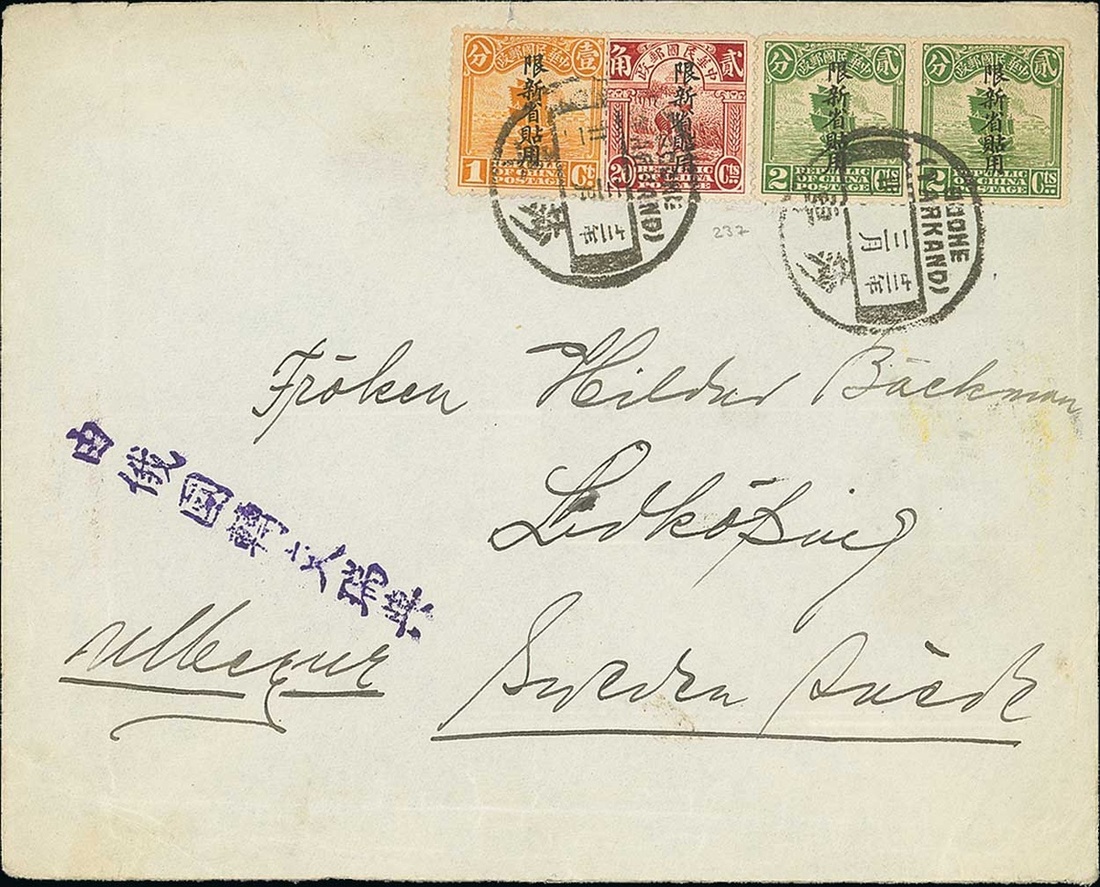 分 政郵國民華中 壹
限新省貼用
1 Ct
REPUBLIC OF CHINA POSTAGE
角 政郵國民華中 貳
限新省貼用
20 Cts
分 政郵國民華中 貳
限新省貼用
2 Cts
REPUBLIC OF CHINA POSTAGE
分 政郵國民華中 貳
限新省貼用
2 Cts
REPUBLIC OF CHINA POSTAGE
十二年
(YARKAND)
十二年
三月
(YARKAND)
237
Fröken Hildur Bäckman
Lidköping
由俄國轉交瑞典
Sweden Suède